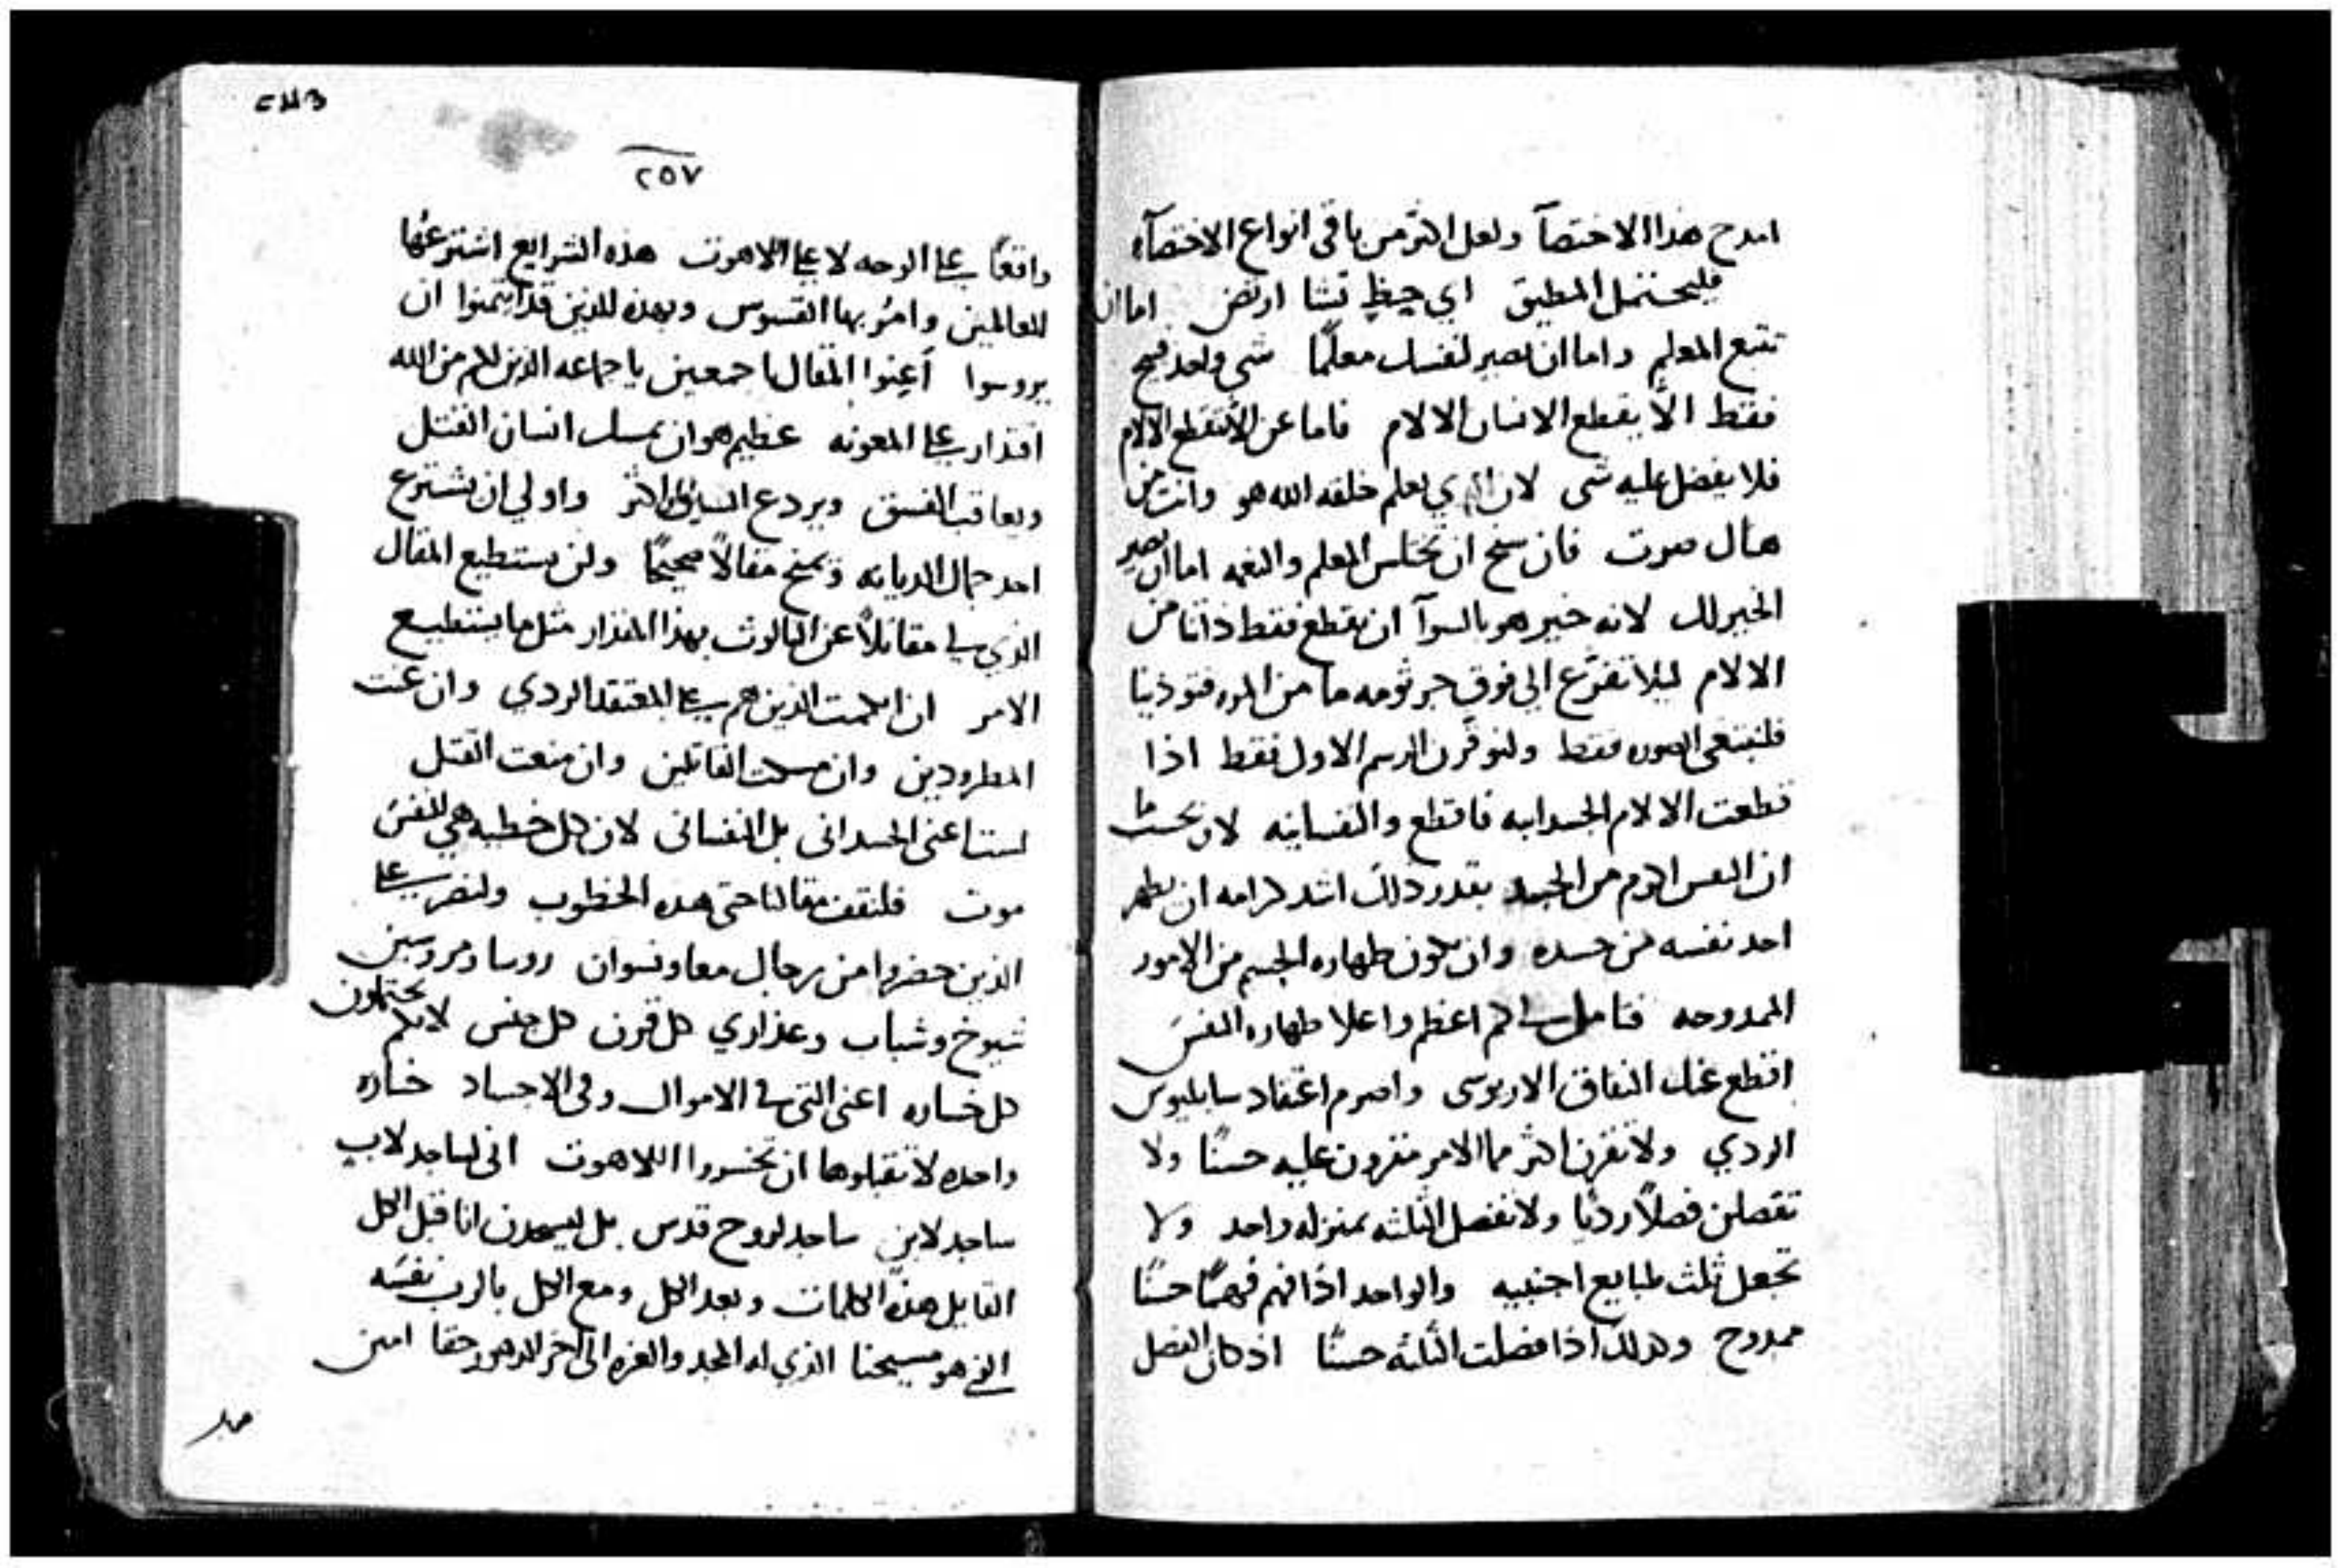 امدح هذا الاختصآ ولعل اكثر من باقي انواع الاختصآء
فليحتمل المطيق اي حيظٍ تشا ارتض اما ان
تتبع المعلم واما ان تصير لنفسك معلمًا شي واحد قبيح
فقط الَّا يقطع الانسان الالام فاما عن الَّا تقطع الالام
فلا يفضل عليه شي لان الذي يعلم خلقه الله هو وانت من
هناك صرت فان سنح ان تختلس المعلم والنعمه اما ان تصير
الخير لك لانه خير هو بالسوآ ان يقطع فقط ذاتنا من
الالام ليلا تفرّع الي فوق جرثومه ما من المره فتوذينا
فلنتبعن الصوره فقط ولنوقّرن الرسم الاول فقط اذا
قطعت الالام الجسدانيه فاقطع والنفسانيه لان بحسب ما
ان النفس اكرم من الجسد بقدر ذلك اشد كرامه ان يطهر
احد نفسه من جسده وان تكون طهاره الجسم من الامور
الممدوحه فتامل لي كم اعظم واعلا طهاره النفس
اقطع عنك النفاق الاريوسي واصرم اعتقاد سابليوس
الردي ولا تقرن اكثر مما الامر مقرون عليه حسنًا ولا
تفصلن فصلًا رديًا ولا تفصل الثلثه بمنزله واحد ولا
تجعل ثلث طبايع اجنبيه والواحد اذا فهم فهمًا حسنًا
ممدوح وكذلك اذا فصلت الثلثه حسنًا اذ كان الفصل
٢٥٧
واقعًا علي الوجه لا علي اللاهوت هذه الشرايع اشترعها
للعالمين وامُر بها القسوس وبهذه للذين قد ايتمنوا ان
يروسوا أعينوا المقال اجمعين يا جماعه الذين لكم من الله
اقتدار علي المعونه عظيم هو ان يمسك انسان القتل
ويعاقب الفسق ويردع السرقه اكثر واولي ان يشترع
احد جمال الديانه ويمنح مقالًا صحيحًا ولن يستطيع المقال
الذي لي مقاتلًا عن الثالوث بهذا المقدار مثل ما يستطيع
الامر ان الجمت الذين هم علي المعتقد الردي وان عنت
المطرودين وان مسكت القاتلين وان منعت القتل
لست اعني الجسداني بل النفساني لان كل خطيه هي للنفس
موت فلتقف مقالنا حتي هذه الخطوب ولنصر علي
الذين حضروا من رجال معا ونسوان روسا ومروسين
شيوخ وشباب وعذاري كل قرن كل جنس لانكم تحتملون
كل خساره اعني التي في الاموال وفي الاجساد خساره
واحده لا تقبلوها ان تخسروا اللاهوت اني لساجد لابٍ
ساجد لابنٍ ساجد لروح قدس بل لنسجدن انا قبل الكل
القايل هذه الكلمات وبعد الكل ومع الكل بالرب نفسه
الذي هو مسيحنا الذي له المجد والعزه الي اخر الدهور حقا امين